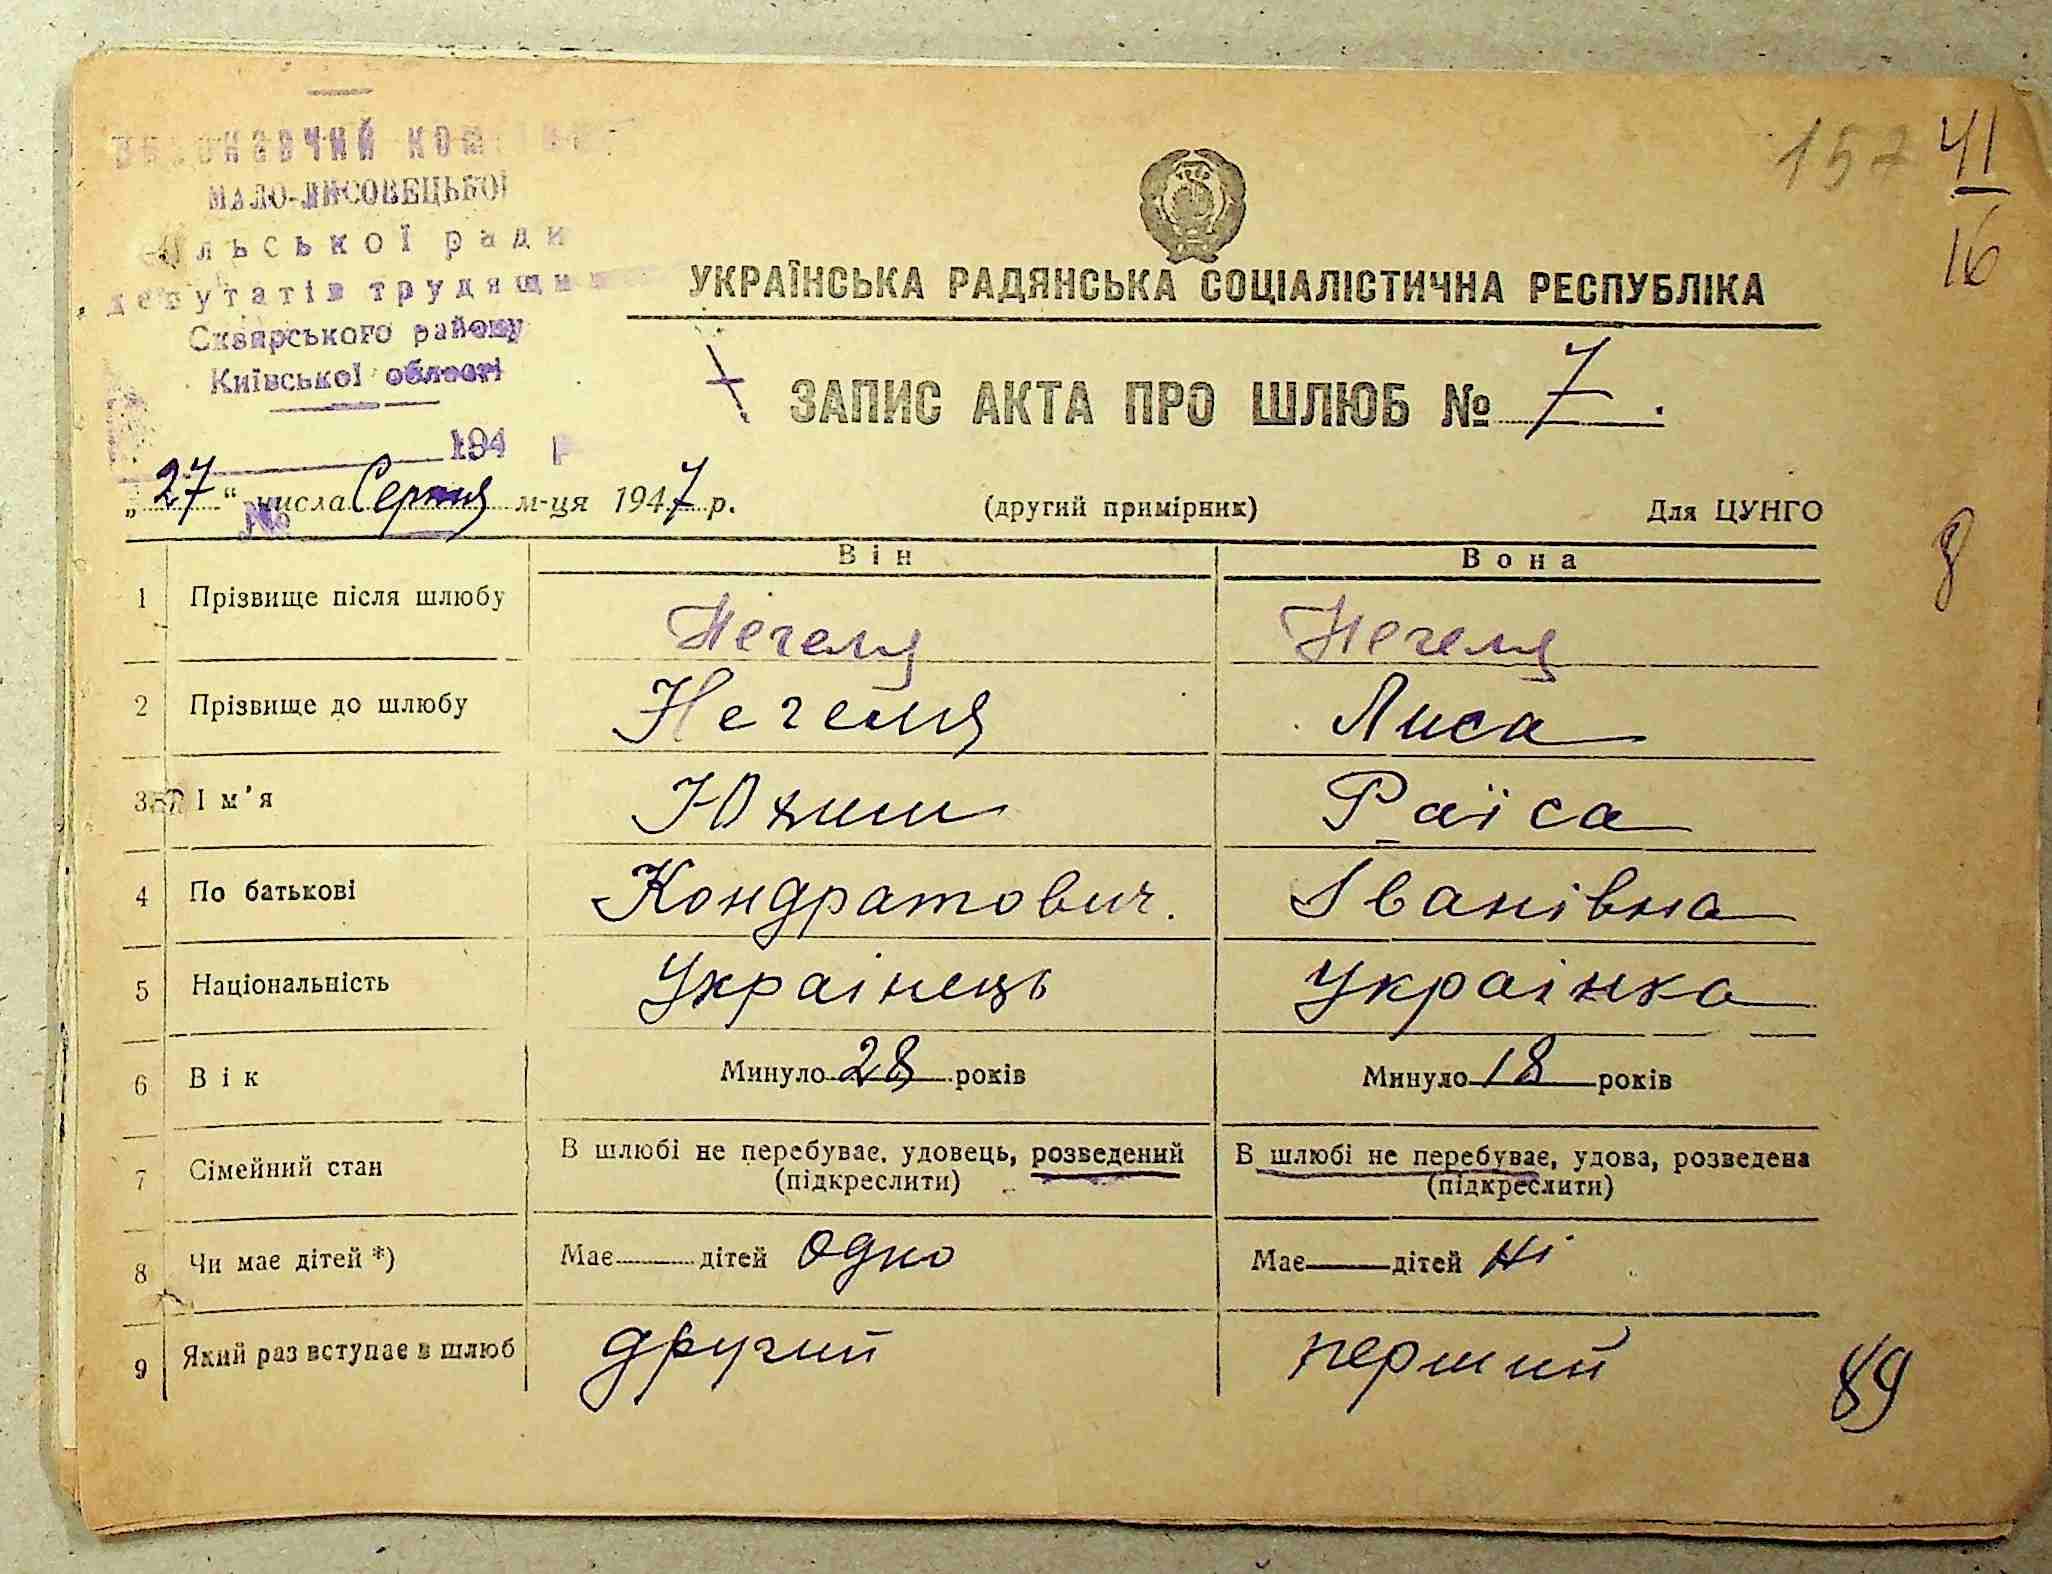 Виконавчий комітет
МАЛО-ЛИСОВЕЦЬКОЇ
сільської ради
депутатів трудящих
Сквирського району
Київської області
194 р
№
157 41
16
УКРАЇНСЬКА РАДЯНСЬКА СОЦІАЛІСТИЧНА РЕСПУБЛІКА
ЗАПИС АКТА ПРО ШЛЮБ № 7.
„27“ числа Серпня м-ця 1947 р. (другий примірник) Для ЦУНГО
8
Він Вона
1 Прізвище після шлюбу Негеля Негеля
2 Прізвище до шлюбу Негеля Лиса
3 Ім'я Юхим Раїса
4 По батькові Кондратович. Іванівна
5 Національність Украінець Украінка
6 Вік Минуло 28 років Минуло 18 років
7 Сімейний стан В шлюбі не перебуває, удовець, розведений В шлюбі не перебуває, удова, розведена
(підкреслити) (підкреслити)
8 Чи має дітей *) Має дітей Одно Має дітей Ні
9 Який раз вступає в шлюб другий перший
89